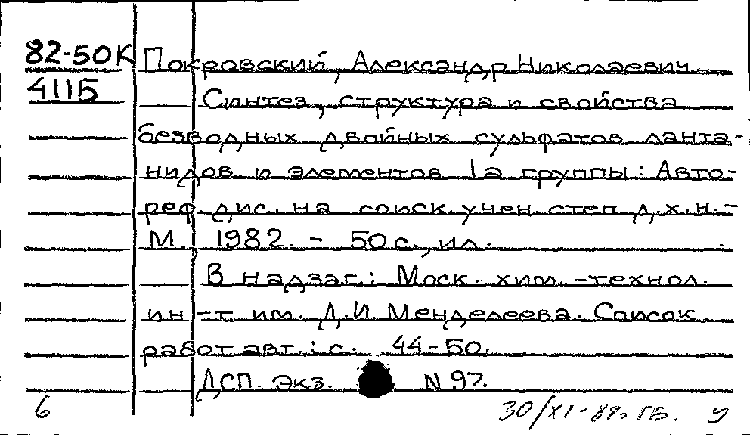 82-50К Покровский, Александр Николаевич
411Б Синтез, структура и свойства
безводных двойных сульфатов ланта-
нидов и элементов Iа группы: Авто-
реф. дис. на соиск. учен. степ. д.х.н.-
М. 1982. - 50 с., ил.
В надзаг.: Моск. хим.-технол.
ин-т им. Д.И. Менделеева. Список
работ авт.: с. 44-50.
ДСП. Экз. N 97.
6 30/XI-